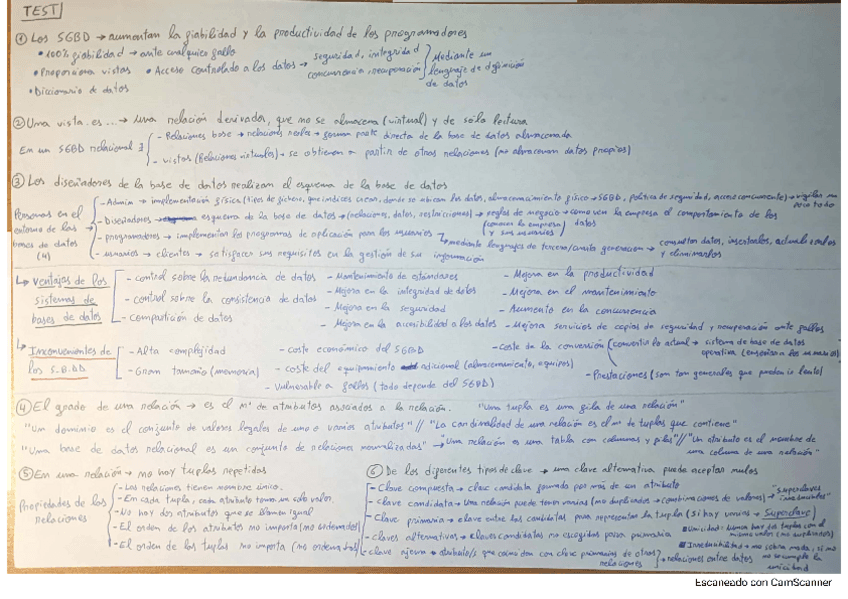 TEST
① Los SGBD → aumentan la fiabilidad y la productividad de los programadores
• 100% fiabilidad → ante cualquier fallo
• Proporciona vistas • Acceso controlado a los datos → seguridad, integridad concurrencia, recuperación } Mediante un lenguaje de definición de datos
• Diccionario de datos
② Una vista es ... → una relación derivada, que no se almacena (virtual) y de sólo lectura
En un SGBD relacional ∃ - Relaciones base → relaciones reales → forman parte directa de la base de datos almacenada
- vistas (Relaciones virtuales) → se obtienen a partir de otras relaciones (no almacenan datos propios)
③ Los diseñadores de la base de datos realizan el esquema de la base de datos
Personas en el entorno de las bases de datos (4)
- Admin → implementación física (tipos de fichero, que índices crean, donde se ubican los datos, almacenamiento físico → SGBD, política de seguridad, acceso concurrente) → vigilan un poco todo
- Diseñadores → esquema de la base de datos → (relaciones, datos, restricciones) → reglas de negocio → como ven la empresa el comportamiento de los datos
(conocen la empresa y sus usuarios)
- programadores → implementan los programas de aplicación para los usuarios → mediante lenguajes de tercera/cuarta generación → consultan datos, insertarlos, actualizarlos y eliminarlos
- usuarios → clientes → satisfacer sus requisitos en la gestión de su información
↳ Ventajas de los sistemas de bases de datos
- control sobre la redundancia de datos
- control sobre la consistencia de datos
- Compartición de datos
- Mantenimiento de estándares
- Mejora en la integridad de datos
- Mejora en la seguridad
- Mejora en la accesibilidad a los datos
- Mejora en la productividad
- Mejora en el mantenimiento
- Aumento en la concurrencia
- Mejora servicios de copias de seguridad y recuperación ante fallos
↳ Inconvenientes de los S.B.DD
- Alta complejidad
- Gran tamaño (memoria)
- coste económico del SGBD
- coste del equipamiento adicional (almacenamiento, equipos)
- Vulnerable a fallos (todo depende del SGBD)
- Coste de la conversión (convertir lo actual → sistema de base de datos
operativa (enseñar a los usuarios)
- Prestaciones (son tan generales que pueden ir lento)
④ El grado de una relación → es el nº de atributos asociados a la relación. "Una tupla es una fila de una relación"
"Un dominio es el conjunto de valores legales de uno o varios atributos" // "La cardinalidad de una relación es el nº de tuplas que contiene"
"Una base de datos relacional es un conjunto de relaciones normalizadas" → "Una relación es una tabla con columnas y filas" // "Un atributo es el nombre de una columna de una relación"
⑤ En una relación → no hay tuplas repetidas
Propiedades de las relaciones
- Las relaciones tienen nombre único.
- En cada tupla, cada atributo toma un solo valor.
- No hay dos atributos que se llamen igual
- El orden de los atributos no importa (no ordenados)
- El orden de las tuplas no importa (no ordenadas)
⑥ De los diferentes tipos de clave → una clave alternativa puede aceptar nulos
- Clave compuesta → clave candidata formada por más de un atributo
- Clave candidata → Una relación puede tener varias (no duplicados → combinaciones de valores) → "superclaves irreducibles"
- Clave primaria → clave entre las candidatas para representar la tupla (si hay varias → Superclave)
- claves alternativas → claves candidatas no escogidas para primaria
- clave ajena → atributo/s que coinciden con clave primaria de otras relaciones } → relaciones entre datos
■ Unicidad: Nunca hay dos tuplas con el mismo valor (no duplicados)
■ Irreducibilidad → no sobra nada, si no no se cumple la unicidad
Escaneado con CamScanner